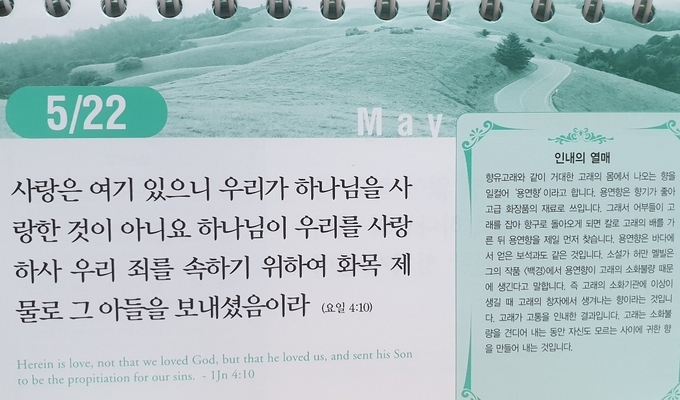 5/22
May
사랑은 여기 있으니 우리가 하나님을 사
랑한 것이 아니요 하나님이 우리를 사랑
하사 우리 죄를 속하기 위하여 화목 제
물로 그 아들을 보내셨음이라 (요일 4:10)
Herein is love, not that we loved God, but that he loved us, and sent his Son
to be the propitiation for our sins. - 1Jn 4:10
인내의 열매
향유고래와 같이 거대한 고래의 몸에서 나오는 향을
일컬어 '용연향'이라고 합니다. 용연향은 향기가 좋아
고급 화장품의 재료로 쓰입니다. 그래서 어부들이 고
래를 잡아 항구로 돌아오게 되면 칼로 고래의 배를 가
른 뒤 용연향을 제일 먼저 찾습니다. 용연향은 바다에
서 얻은 보석과도 같은 것입니다. 소설가 허만 멜빌은
그의 작품 《백경》에서 용연향이 고래의 소화불량 때문
에 생긴다고 말합니다. 즉 고래의 소화기관에 이상이
생길 때 고래의 창자에서 생겨나는 향이라는 것입니
다. 고래가 고통을 인내한 결과입니다. 고래는 소화불
량을 견디어 내는 동안 자신도 모르는 사이에 귀한 향
을 만들어 내는 것입니다.